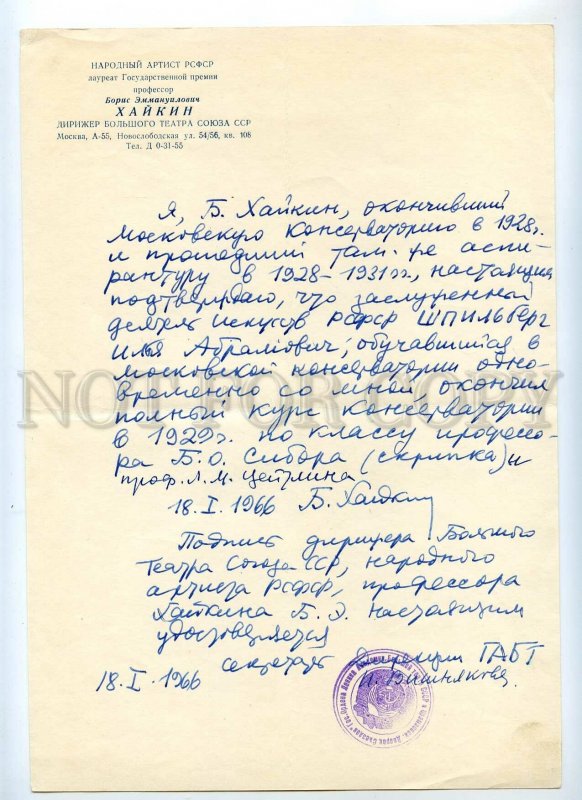 НАРОДНЫЙ АРТИСТ РСФСР
лауреат Государственной премии
профессор
Борис Эммануилович
ХАЙКИН
ДИРИЖЕР БОЛЬШОГО ТЕАТРА СОЮЗА ССР
Москва, А-55, Новослободская ул. 54/56, кв. 108
Тел. Д 0-31-55
Я, Б. Хайкин, окончивший
Московскую Консерваторию в 1928г.
и прошедший там-же аспи-
рантуру в 1928-1931гг., настоящим
подтверждаю, что заслуженный
деятель искусств РСФСР ШПИЛЬБЕРГ
Илья Абрамович, обучавшийся в
Московской консерватории одно-
временно со мной окончил
полный курс консерватории
в 1929г. по классу профессо-
ра Б.О. Сибора (скрипка) и
проф. Л.М. Цейтлина
18.I.1966 Б. Хайкин
Подпись дирижера Большого
Театра Союза ССР, народного
артиста РСФСР, профессора
Хайкина Б.Э. настоящим
удостоверяется
секретарь Дирекции ГАБТ
18.I.1966 Вишнякова
NOT FOR COPY